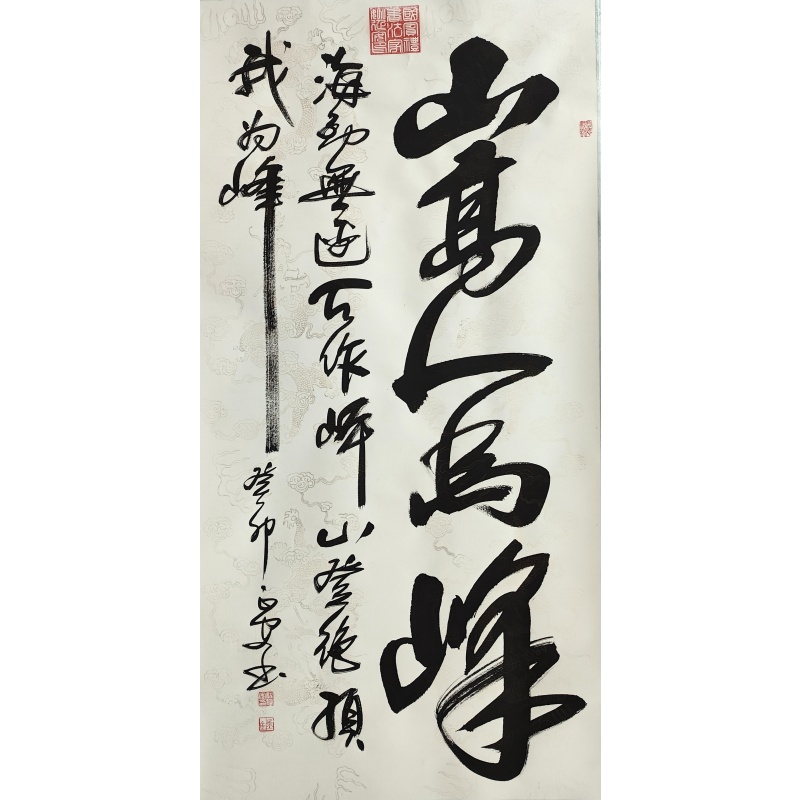 山高人為峰
海到無邊天作岸山登絕頂
我为峰
癸卯 书